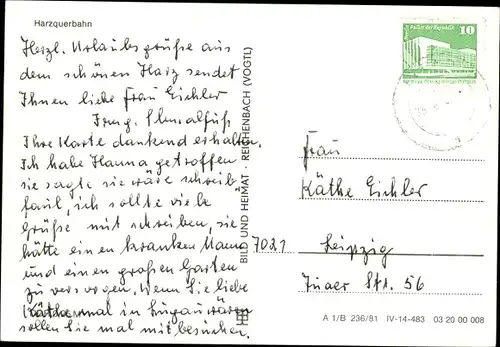 Harzquerbahn
Herzl. Urlaubsgrüße aus
dem schönen Harz sendet
Ihnen liebe Frau Eichler
Irmg.
Ihre Karte dankend erhalten.
Ich habe Hanna getroffen
sie sagte sie wäre schreib
faul, ich sollte viele
Grüße mit schreiben, sie
hätte einen kranken Mann
und einen großen Garten
zu versorgen. Wenn Sie liebe
Käthe mal in waren
sollen Sie mal mit besuchen.
BILD UND HEIMAT · REICHENBACH (VOGTL)
10
Palast der Republik
DDR
Frau
Käthe Eichler
7021 Leipzig
Str. 56
A 1/B 236/81 IV-14-483 03 20 00 008